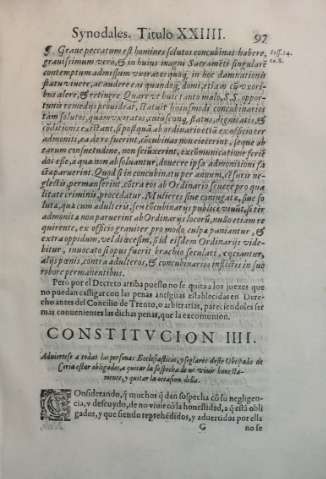 Synodales. Titulo XXIIII. 97
Graue peccatum est homines solutos concubinas habere,
grauissimum verò, & in huius magni Sacramẽti singularẽ
contemptum admissum vxoratos quoq; in hoc damnationis
statu viuere, ac audere eas quandoq; domi, etiam cũ vxori-
bus alere, & retinere. Quare vt huic tanto malo, S. S. oppor-
tunis remedijs prouideat, statuit huiusmodi concubinarios
tam solutos, quam vxoratos, cuiuscunq; status, dignitatis, &
cõditionis existant, si postquã ab ordinario etiã ex officio ter
admoniti, ea de re fuerint, cõcubinas non eiecerint, seque ab
earum consuetudine, non seiũxerint, excõmunicatione feriẽ
dos esse, a qua non absoluantur, donec re ipsa admonitioni fa
ctæ paruerint. Quod si in concubinatu per annum, cẽsuris ne-
glectis, permanserint, cõtra eos ab Ordinario seuere pro qua
litate criminis, procedatur. Mulieres siue coniugatæ, siue so
lutæ, quæ cum adulteris, seu cõcubinarijs publicè viuũt, si ter
admonitæ non paruerint ab Ordinarijs locorũ, nullo etiam re
quirente, ex officio grauiter pro modo culpæ puniantur, &
extra oppidum, vel diœcesim, si id eisdem Ordinarijs vide-
bitur, inuocato si opus fuerit brachio seculari, eijciantur,
alijs pœnis, contra adulteros, & concubinarios inflictis in suo
robore permanentibus.
Pero por el Decreto arriba puesto no se quita a los juezes que
no puedan castigar con las penas antiguas establecidas en Dere-
cho antes del Concilio de Trento, o arbitrarias, pareciendoles ser
mas conuenientes las dichas penas, que la excomunion.
CONSTITVCION IIII.
Aduiertese a todas las personas Ecclesiasticas, y seglares deste Obispado de
Coria estar obligados, a quitar la sospecha de no viuir honesta-
mente, y quitar la ocasion della.
COnsiderando, q̃ muchos q̃ dan sospecha cõ su negligen-
cia, y descuydo, de no viuir cõ la honestidad, a q̃ estã obli
gados, y que siendo reprehẽdidos, y aduertidos por ella
G no se